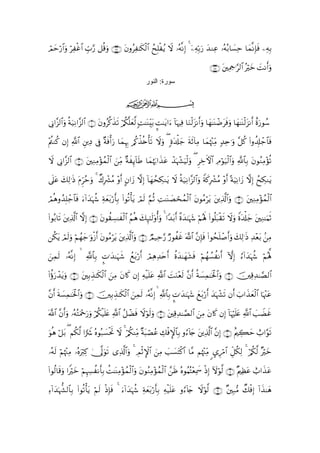 بِهِۦ فَإِنَّمَا حِسَابُهُۥ عِندَ رَبِّهِۦٓ ۚ إِنَّهُۥ لَا يُفْلِحُ ٱلْكَٰفِرُونَ ﴿١١٧﴾ وَقُل رَّبِّ ٱغْفِرْ وَٱرْحَمْ
وَأَنتَ خَيْرُ ٱلرَّٰحِمِينَ ﴿١١٨﴾
سورة: النور
بِسْمِ ٱللَّهِ ٱلرَّحْمَٰنِ ٱلرَّحِيمِ
سُورَةٌ أَنزَلْنَٰهَا وَفَرَضْنَٰهَا وَأَنزَلْنَا فِيهَآ ءَايَٰتٍۭ بَيِّنَٰتٍ لَّعَلَّكُمْ تَذَكَّرُونَ ﴿١﴾ ٱلزَّانِيَةُ وَٱلزَّانِى
فَٱجْلِدُوا۟ كُلَّ وَٰحِدٍ مِّنْهُمَا مِا۟ئَةَ جَلْدَةٍ ۖ وَلَا تَأْخُذْكُم بِهِمَا رَأْفَةٌ فِى دِينِ ٱللَّهِ إِن كُنتُمْ
تُؤْمِنُونَ بِٱللَّهِ وَٱلْيَوْمِ ٱلْءَاخِرِ ۖ وَلْيَشْهَدْ عَذَابَهُمَا طَآئِفَةٌ مِّنَ ٱلْمُؤْمِنِينَ ﴿٢﴾ ٱلزَّانِى لَا
يَنكِحُ إِلَّا زَانِيَةً أَوْ مُشْرِكَةً وَٱلزَّانِيَةُ لَا يَنكِحُهَآ إِلَّا زَانٍ أَوْ مُشْرِكٌ ۚ وَحُرِّمَ ذَٰلِكَ عَلَى
ٱلْمُؤْمِنِينَ ﴿٣﴾ وَٱلَّذِينَ يَرْمُونَ ٱلْمُحْصَنَٰتِ ثُمَّ لَمْ يَأْتُوا۟ بِأَرْبَعَةِ شُهَدَآءَ فَٱجْلِدُوهُمْ
ثَمَٰنِينَ جَلْدَةً وَلَا تَقْبَلُوا۟ لَهُمْ شَهَٰدَةً أَبَدًا ۚ وَأُو۟لَٰٓئِكَ هُمُ ٱلْفَٰسِقُونَ ﴿٤﴾ إِلَّا ٱلَّذِينَ تَابُوا۟
مِنۢ بَعْدِ ذَٰلِكَ وَأَصْلَحُوا۟ فَإِنَّ ٱللَّهَ غَفُورٌ رَّحِيمٌ ﴿٥﴾ وَٱلَّذِينَ يَرْمُونَ أَزْوَٰجَهُمْ وَلَمْ يَكُن
لَّهُمْ شُهَدَآءُ إِلَّآ أَنفُسُهُمْ فَشَهَٰدَةُ أَحَدِهِمْ أَرْبَعُ شَهَٰدَٰتٍۭ بِٱللَّهِ ۙ إِنَّهُۥ لَمِنَ
ٱلصَّٰدِقِينَ ﴿٦﴾ وَٱلْخَٰمِسَةُ أَنَّ لَعْنَتَ ٱللَّهِ عَلَيْهِ إِن كَانَ مِنَ ٱلْكَٰذِبِينَ ﴿٧﴾ وَيَدْرَؤُا۟
عَنْهَا ٱلْعَذَابَ أَن تَشْهَدَ أَرْبَعَ شَهَٰدَٰتٍۭ بِٱللَّهِ ۙ إِنَّهُۥ لَمِنَ ٱلْكَٰذِبِينَ ﴿٨﴾ وَٱلْخَٰمِسَةَ أَنَّ
غَضَبَ ٱللَّهِ عَلَيْهَآ إِن كَانَ مِنَ ٱلصَّٰدِقِينَ ﴿٩﴾ وَلَوْلَا فَضْلُ ٱللَّهِ عَلَيْكُمْ وَرَحْمَتُهُۥ وَأَنَّ ٱللَّهَ
تَوَّابٌ حَكِيمٌ ﴿١٠﴾ إِنَّ ٱلَّذِينَ جَآءُو بِٱلْإِفْكِ عُصْبَةٌ مِّنكُمْ ۚ لَا تَحْسَبُوهُ شَرًّا لَّكُم ۖ بَلْ هُوَ
خَيْرٌ لَّكُمْ ۚ لِكُلِّ ٱمْرِئٍ مِّنْهُم مَّا ٱكْتَسَبَ مِنَ ٱلْإِثْمِ ۚ وَٱلَّذِى تَوَلَّىٰ كِبْرَهُۥ مِنْهُمْ لَهُۥ
عَذَابٌ عَظِيمٌ ﴿١١﴾ لَّوْلَآ إِذْ سَمِعْتُمُوهُ ظَنَّ ٱلْمُؤْمِنُونَ وَٱلْمُؤْمِنَٰتُ بِأَنفُسِهِمْ خَيْرًا وَقَالُوا۟
هَٰذَآ إِفْكٌ مُّبِينٌ ﴿١٢﴾ لَّوْلَا جَآءُو عَلَيْهِ بِأَرْبَعَةِ شُهَدَآءَ ۚ فَإِذْ لَمْ يَأْتُوا۟ بِٱلشُّهَدَآءِ